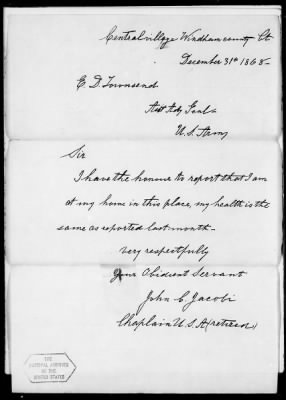 Central village Windham county Ct
December 31st 1868-
E. D. Townsend
Asst Adj Genl-
U.S. Army
Sir
I have the honour to report that I am
at my home in this place, my health is the
same as reported last month-
very respectfully
Your Obidient Servant
John C Jacobi
Chaplain U.S.A (retired)
THE
NATIONAL ARCHIVES
OF THE
UNITED STATES